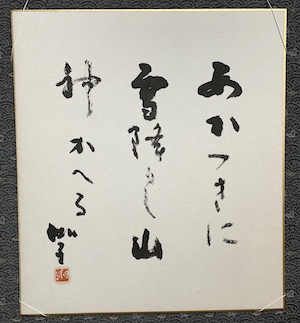 あかつきに
雪降りし山
神かへる